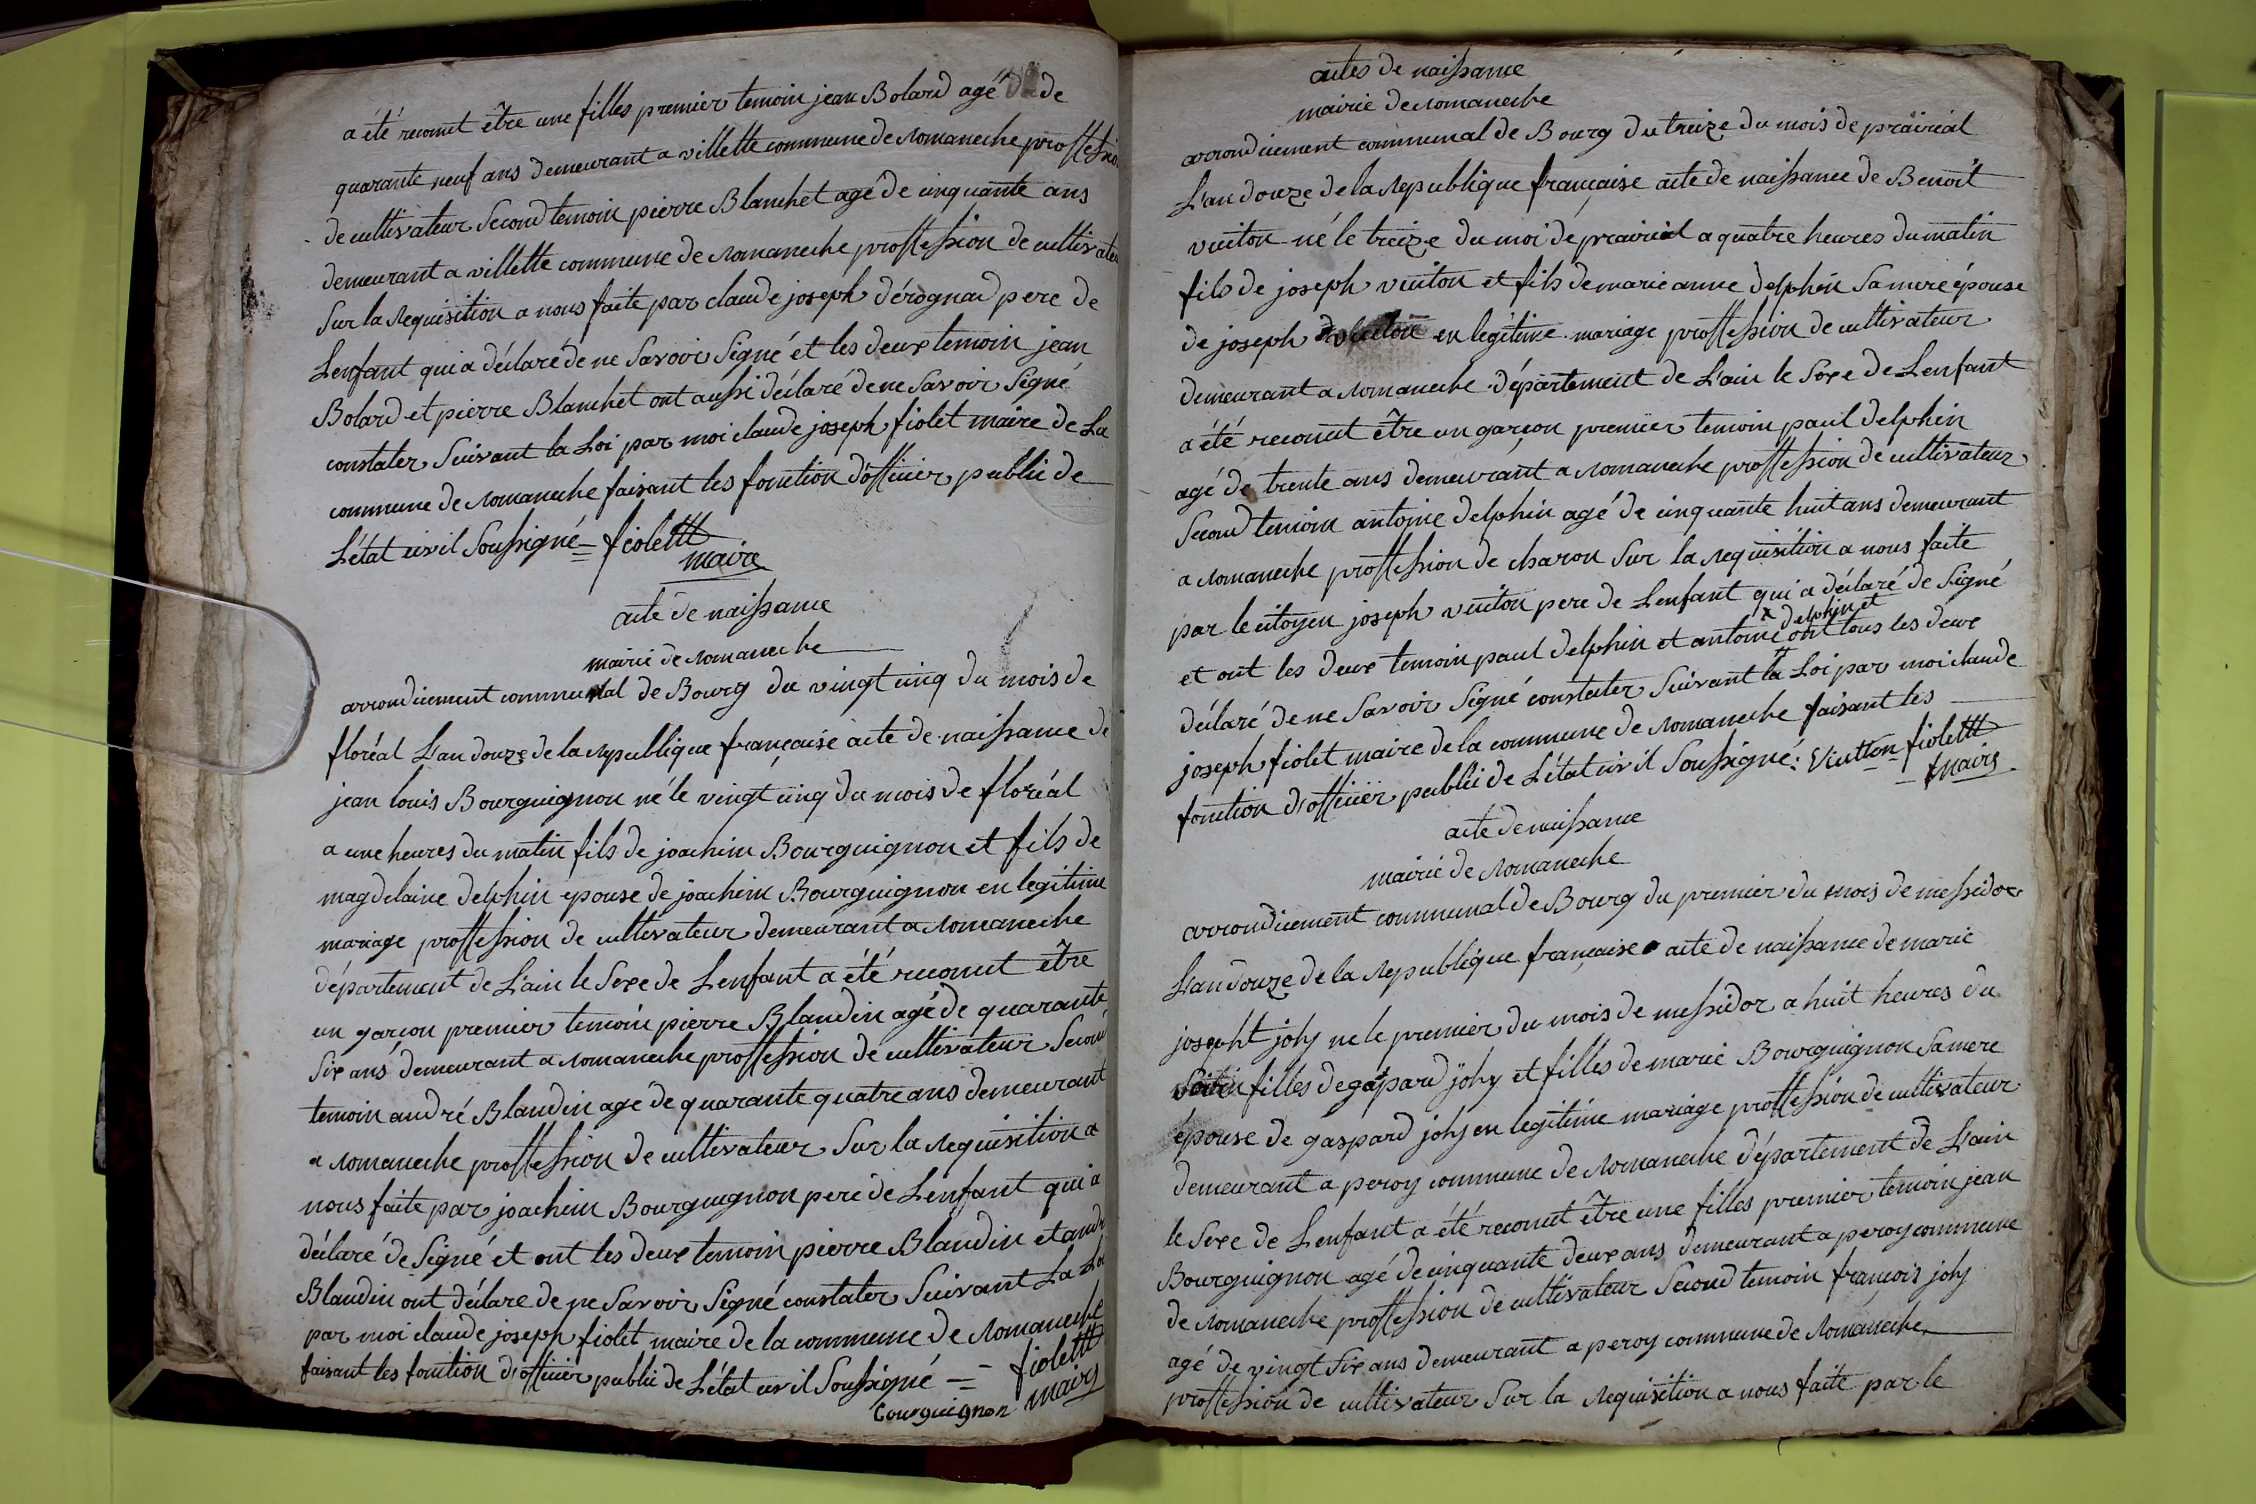 a été reconut être une filles premier temoin jean Bolard agé de
quarante neuf ans demeurant a villette commune de Romaneche proffession
de cultivateur Second temoin pierre Blanchet agé de cinquante ans
demeurant a villette commune de Romaneche proffession de cultivateur
Sur la Requisition a nous faite par claude joseph dérognad pere de
Lenfant qui a déclaré de ne Savoir Signé et les deux temoin jean
Bolard et pierre Blanchet ont aussi déclaré de ne Savoir Signé
constater Suivant la Loi par moi claude joseph fiolet maire de La
commune de Romaneche faisant les fonction dofficier public de
L'état civil Soussigné = fiolettt
maire
acte de naissance
mairie de Romaneche
arrondicement communal de Bourg du vingt cinq du mois de
floréal L'an douze de la Republique francaise acte de naissance de
jean louis Bourguignon né le vingt cinq du mois de floréal
a une heures du matin fils de joachim Bourguignon et fils de
magdelaine delphin epouse de joachim Bourguignon en legitime
mariage proffession de cultivateur demeurant a Romaneche
département de L'ain le Sexe de Lenfant a été reconut être
un garcon premier temoin pierre Blandin agé de quarante
Six ans demeurant a Romaneche proffession de cultivateur Second
temoin andré Blandin agé de quarante quatre ans demeurant
a Romaneche proffession de cultivateur Sur la Requisition a
nous faite par joachim Bourguignon pere de Lenfant qui a
déclaré de Signé et ont les deux temoin pierre Blandin et andré
Blandin ont déclare de ne Savoir Signé constater Suivant La Loi
par moi claude joseph fiolet maire de la commune de Romaneche
faisant les fonction d'officier public de L'état civil Soussigné = fiolettt
Courguignon maire
actes de naissance
mairie de Romaneche
arrondicement communal de Bourg du treize du mois de prairial
L'an douze de la Republique française acte de naissance de Benoit
vuiton né le treize du moi de prairial a quatre heures du matin
fils de joseph vuiton et fils de marie anne delphin Sa mere épouse
de joseph vuiton en legitime mariage proffession de cultivateur
demeurant a Romaneche département de L'ain le Sexe de Lenfant
a été reconut être un garçon premier temoin paul delphin
agé de trente ans demeurant a Romaneche proffession de cultivateur
Second temoin antoine delphin agé de cinquante huit ans demeurant
a Romaneche proffession de charon Sur la Requisition a nous faite
par le citoyen joseph vuiton pere de Lenfant qui a déclaré de Signé
delphin et
et ont les deux temoin paul delphin et antoine ont tous les deux
déclaré de ne Savoir Signé constater Suivant la Loi par moi claude
joseph fiolet maire de la commune de Romaneche faisant les
fonction d'officiér public de L'état civil Soussigné: Viutton fiolettt
maire
acte de naissance
mairie de Romaneche
arrondicement communal de Bourg du premier du mois de messidor
L'an douze de la Republique francaise acte de naissance de marie
josepht johy ne le premier du mois de messidor a huit heures du
filles de gaspard johy et filles de marie Bourguignon Sa mere
épouse de gaspard johy en legitime mariage proffession de cultivateur
demeurant a peroy commune de Romaneche département de L'ain
le Sexe de Lenfant a été reconut être une filles premier temoin jean
Bourguignon agé de cinquante deux ans demeurant a peroy commune
de Romaneche proffession de cultivateur Second temoin francois johy
agé de vingt Six ans demeurant a peroy commune de Romaneche
proffession de cultivateur Sur la Requisition a nous faite par le